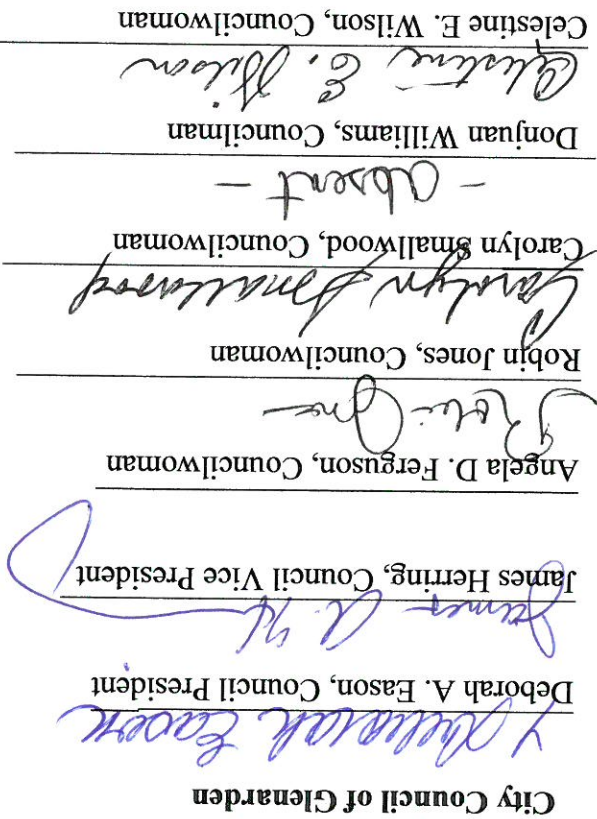 City Council of Glenarden
Deborah Eason
Deborah A. Eason, Council President
James A. H
James Herring, Council Vice President
Angela D. Ferguson, Councilwoman
Robin Jones
Robin Jones, Councilwoman
Carolyn Smallwood
Carolyn Smallwood, Councilwoman
- absent -
Donjuan Williams, Councilman
Celestine E. Wilson
Celestine E. Wilson, Councilwoman